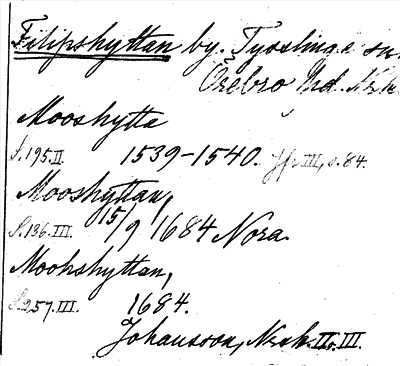 Filipshyttan by. Tysslinge sn.
Örebro hd. Nrk.
Mooshytta
S. 195. II. 1539-1540. Jfr III, s. 84.
Mooshyttan,
S. 136. III. 15/9 1684 Nora.
Moohshyttan,
S. 257. III. 1684.
Johansson, Nrsk. II. III.